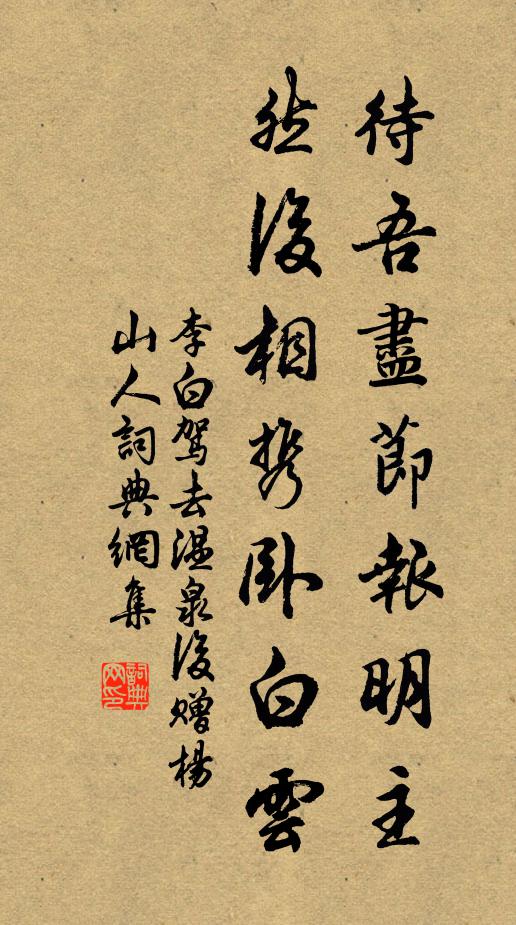 待吾盡節報明主
然後相携卧白雲
李白駕去溫泉後贈楊
山人詞典網集
詞典
网印